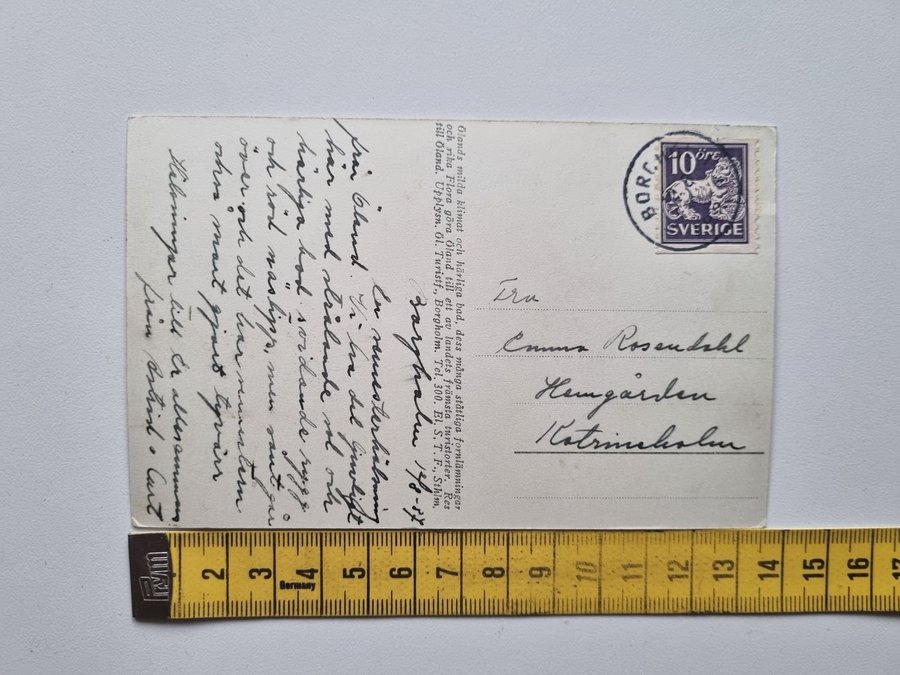 Ölands milda klimat och härliga bad, dess många ståtliga fornlämningar
och rika Flora göra Öland till ett av landets främsta turistorter. Res
till Öland. Upplysn. Öl. Turistf., Borgholm. Tel. 300. El. S. T. F., Sthlm.
Borgholm 1/8-37
En semesterhälsning
från Öland. Vi ha det
här med strålande sol och
härliga bad, svidande rygg
och röd nästipp, men sånt går
över och det har semestern
också snart gjort tyvärr
Hälsningar till Er allesammans
från Astrid o Curt
10 öre
SVERIGE
BORG
Fru
Emma Rosendahl
Hemgården
Katrineholm
2 3 4 5 6 7 8 9 10 11 12 13 14 15 16 17
Germany